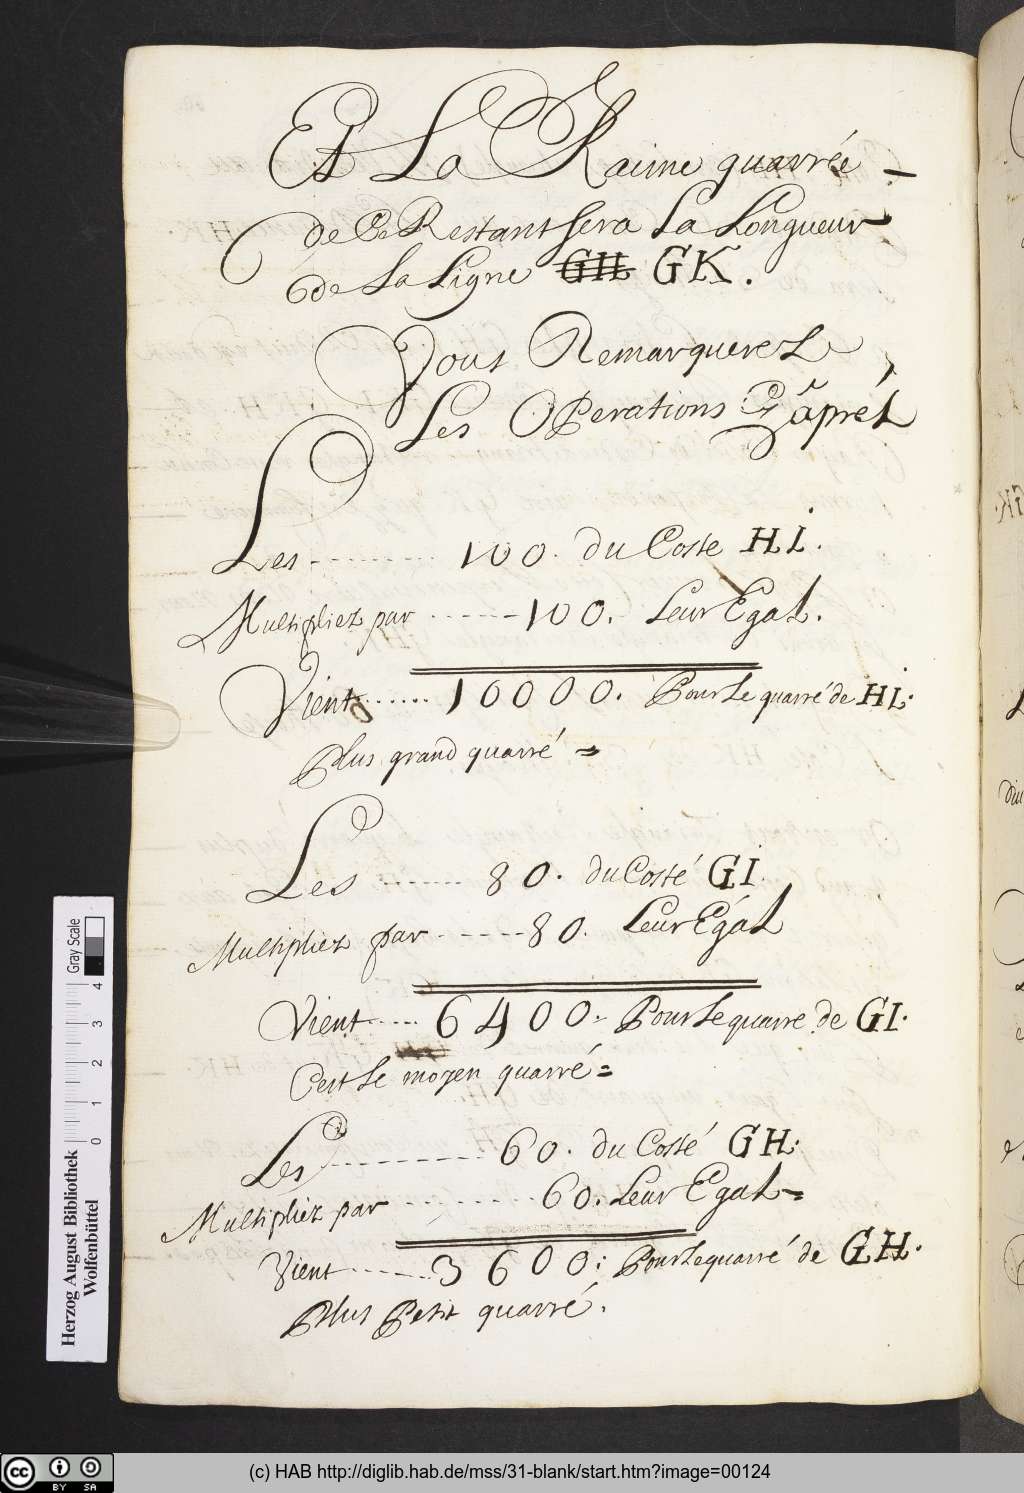 Et La Racine quarrée
de Ce Restant sera La Longueur
de La Ligne GH GK.
Vous Remarquerez
Les Operations Cy aprez
Les 100. du Coste HI.
Multipliez par 100. Leur Egal.
Vient 10000. Pour Le quarré de HI.
Plus grand quarré =
Les 80. du Costé GI.
Multipliez par 80. Leur Egal
Vient 6400. Pour Le quarre de GI.
C'est Le moyen quarré =
Les 60. du Costé GH:
Multipliez par 60. Leur Egal =
Vient 3600: Pour Le quarré de GH.
Plus Petit quarré.
Gray Scale
0 1 2 3 4
Herzog August Bibliothek
Wolfenbüttel
(c) HAB http://diglib.hab.de/mss/31-blank/start.htm?image=00124
cc BY SA